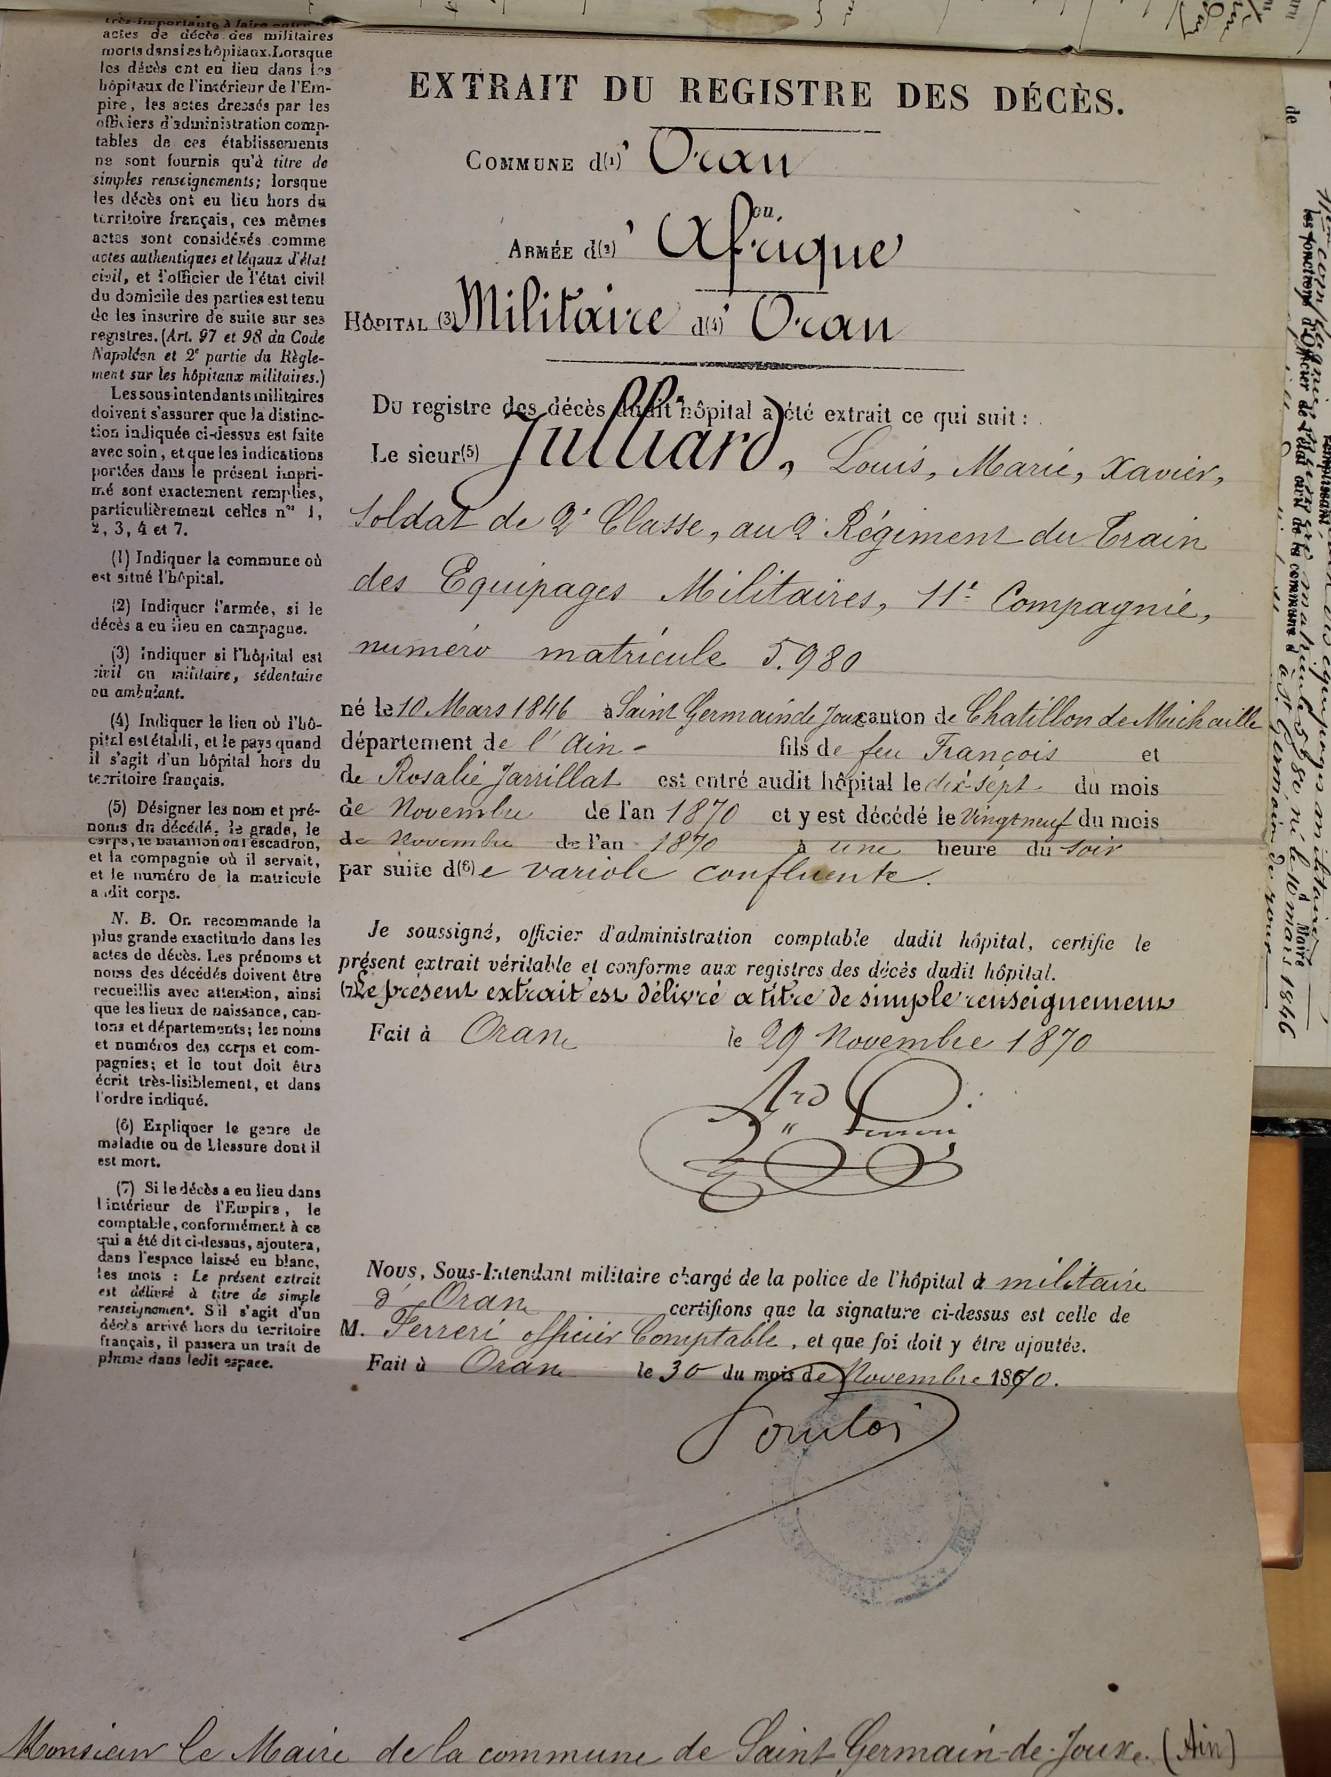 actes de décès des militaires
morts dans les hôpitaux. Lorsque
les décès ont eu lieu dans les
hôpitaux de l'intérieur de l'Em-
pire, les actes dressés par les
officiers d'administration comp-
tables de ces établissements
ne sont fournis qu'à titre de
simples renseignements; lorsque
les décès ont eu lieu hors du
territoire français, ces mêmes
actes sont considérés comme
actes authentiques et légaux d'état
civil, et l'officier de l'état civil
du domicile des parties est tenu
de les inscrire de suite sur ses
registres. (Art. 97 et 98 du Code
Napoléon et 2e partie du Règle-
ment sur les hôpitaux militaires.)
Les sous-intendants militaires
doivent s'assurer que la distinc-
tion indiquée ci-dessus est faite
avec soin, et que les indications
portées dans le présent impri-
mé sont exactement remplies,
particulièrement celles nos 1,
2, 3, 4 et 7.
(1) Indiquer la commune où
est situé l'hôpital.
(2) Indiquer l'armée, si le
décès a eu lieu en campagne.
(3) Indiquer si l'hôpital est
civil ou militaire, sédentaire
ou ambulant.
(4) Indiquer le lieu où l'hô-
pital est établi, et le pays quand
il s'agit d'un hôpital hors du
territoire français.
(5) Désigner les nom et pré-
noms du décédé, le grade, le
corps, le bataillon ou l'escadron,
et la compagnie où il servait,
et le numéro de la matricule
audit corps.
N. B. On recommande la
plus grande exactitude dans les
actes de décès. Les prénoms et
noms des décédés doivent être
recueillis avec attention, ainsi
que les lieux de naissance, can-
tons et départements; les noms
et numéros des corps et com-
pagnies; et le tout doit être
écrit très-lisiblement, et dans
l'ordre indiqué.
(6) Expliquer le genre de
maladie ou de blessure dont il
est mort.
(7) Si le décès a eu lieu dans
l'intérieur de l'Empire, le
comptable, conformément à ce
qui a été dit ci-dessus, ajoutera,
dans l'espace laissé en blanc,
les mots : Le présent extrait
est délivré à titre de simple
renseignement. S'il s'agit d'un
décès arrivé hors du territoire
français, il passera un trait de
plume dans ledit espace.
EXTRAIT DU REGISTRE DES DÉCÈS.
COMMUNE d(1)' Oran
ou
ARMÉE d(2)' Afrique
HÔPITAL (3) Militaire d(4)' Oran
Du registre des décès dudit hôpital a été extrait ce qui suit :
Le sieur(5) Julliard, Louis, Marie, Xavier,
Soldat de 2e Classe, au 2e Régiment du Train
des Equipages Militaires, 11e Compagnie,
numéro matricule 5.980
né le 10 Mars 1846 à Saint Germain de Joux canton de Chatillon de Michaille
département de l'Ain - fils de feu François et
de Rosalie Jarrillat est entré audit hôpital le dix-sept du mois
de Novembre de l'an 1870 et y est décédé le Vingt neuf du mois
de Novembre de l'an 1870 à une heure du soir
par suite d(6)e variole confluente.
Je soussigné, officier d'administration comptable dudit hôpital, certifie le
présent extrait véritable et conforme aux registres des décès dudit hôpital.
(7) Le présent extrait est délivré a titre de simple renseignement
Fait à Oran le 29 Novembre 1870
Nous, Sous-Intendant militaire chargé de la police de l'hôpital d militaire
d'Oran certifions que la signature ci-dessus est celle de
M. Ferreri officier Comptable, et que foi doit y être ajoutée.
Fait à Oran le 30 du mois de Novembre 1870.
Monsieur le Maire de la commune de Saint Germain-de-Joux. (Ain)
de
les fonctions d'Officier de l'état civil de la commune d
Maire